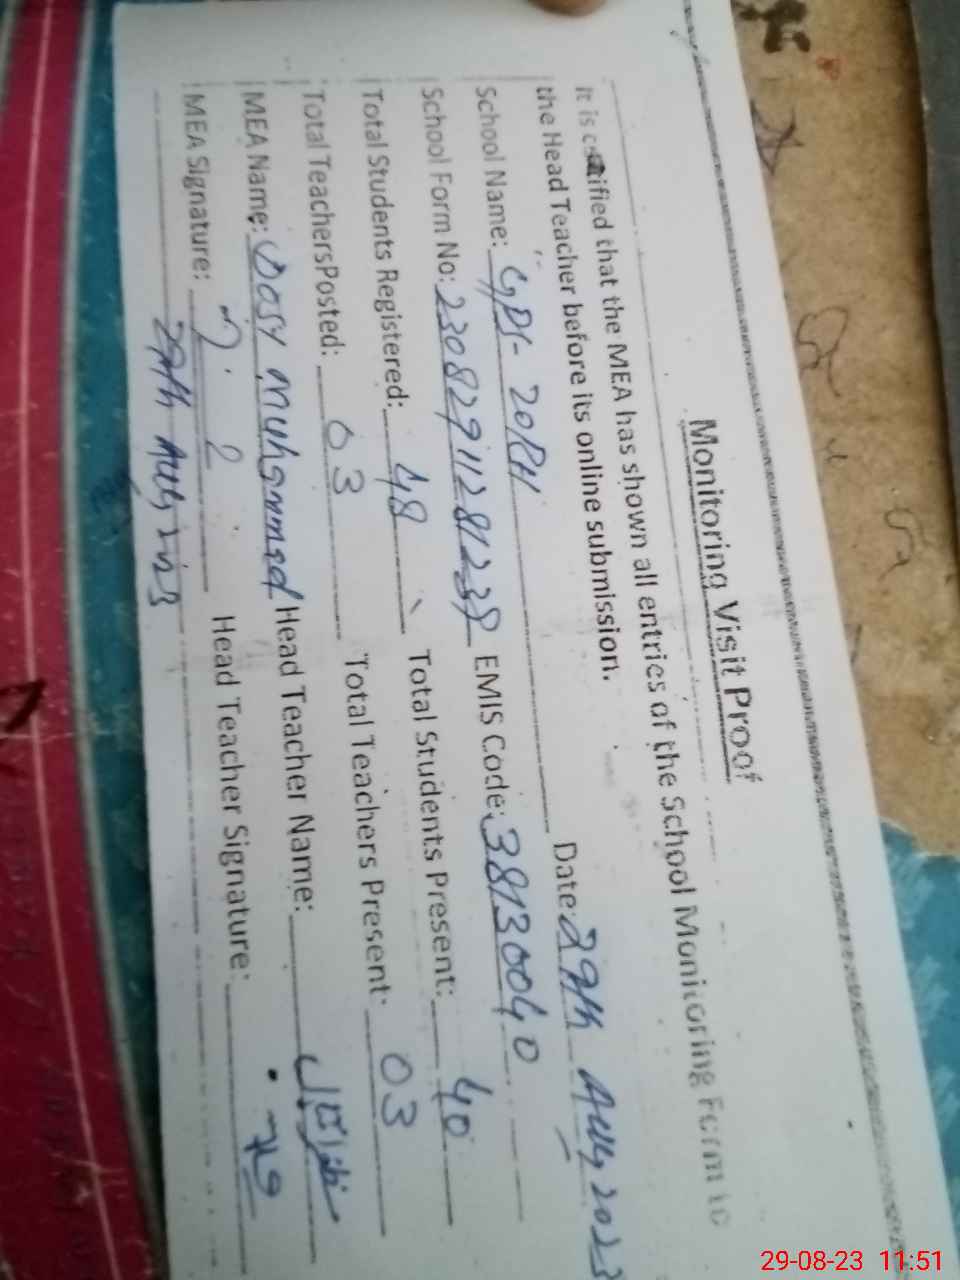 Monitoring Visit Proof
It is certified that the MEA has shown all entries of the School Monitoring Form to
the Head Teacher before its online submission.
School Name: Date: 29th Aug 2023
School Form No: EMIS Code: 38130040
Total Students Registered: 48 Total Students Present: 40
Total TeachersPosted: 03 Total Teachers Present: 03
MEA Name: Muhammad Head Teacher Name:
MEA Signature: Head Teacher Signature:
29th Aug 2023
29-08-23 11:51